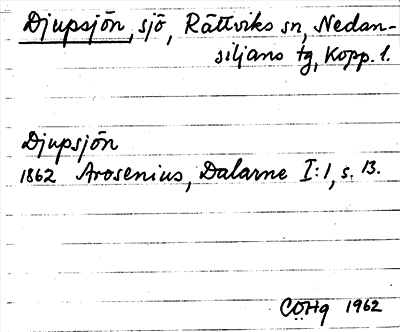 Djupsjön, sjö, Rättviks sn, Nedan-
siljans tg, Kopp. l.
Djupsjön
1862 Arosenius, Dalarne I:1, s. 13.
COHg 1962